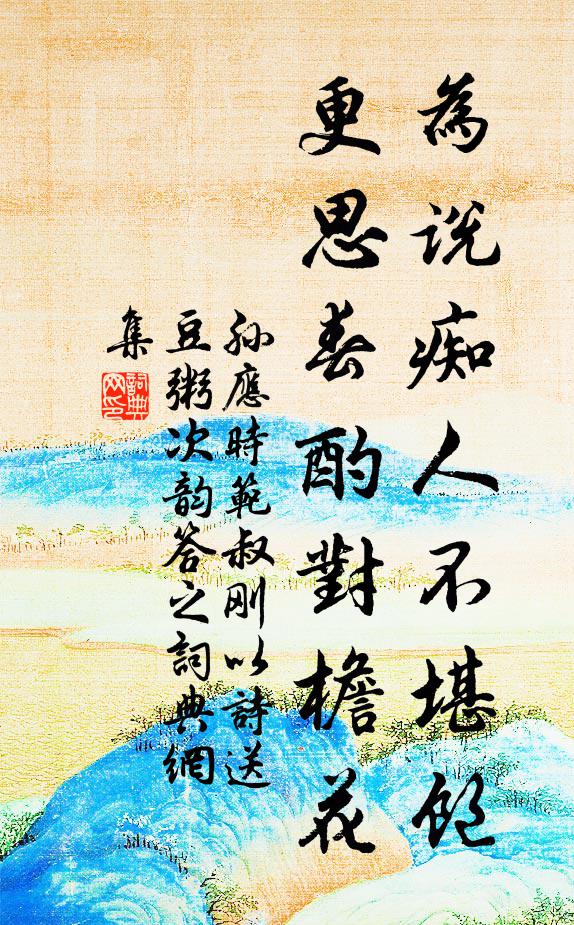 為說痴人不堪飽
更思春酌對檐花
孙應時範叔刚以詩送
豆粥次韵答之詞典網
集
詞典
网印